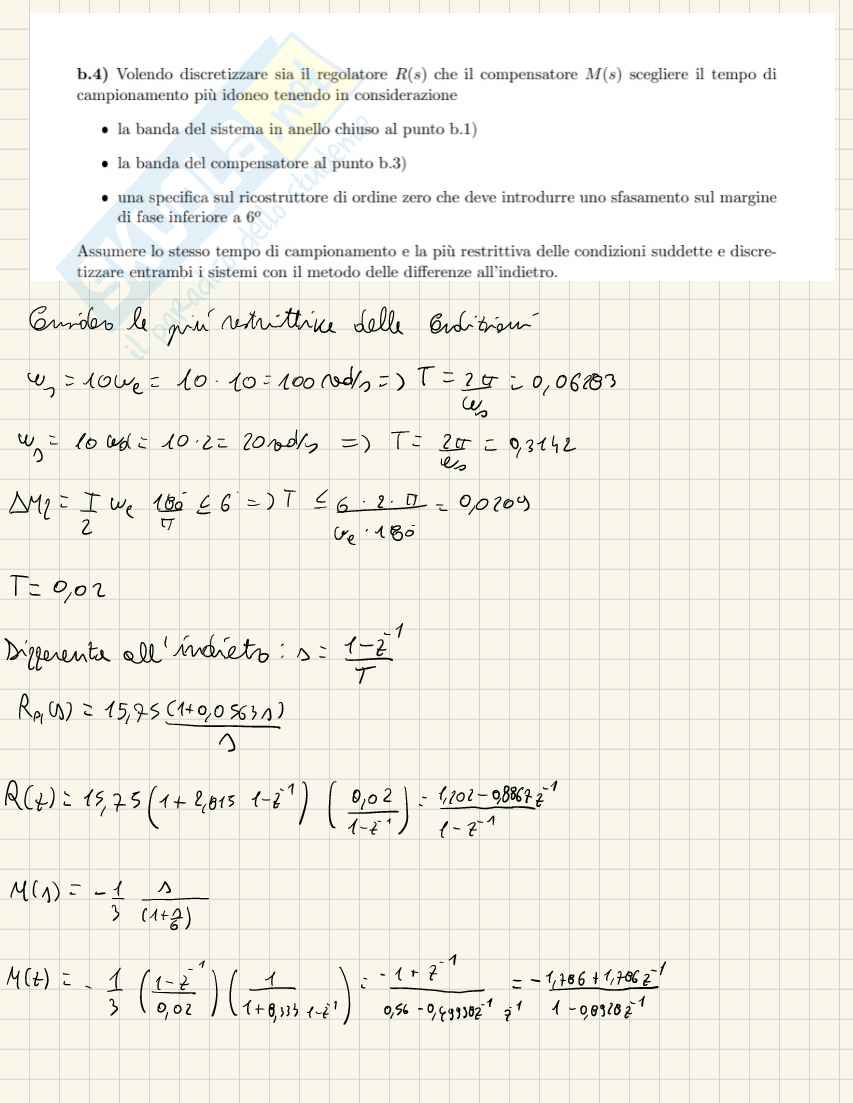 b.4) Volendo discretizzare sia il regolatore R(s) che il compensatore M(s) scegliere il tempo di
campionamento più idoneo tenendo in considerazione
• la banda del sistema in anello chiuso al punto b.1)
• la banda del compensatore al punto b.3)
• una specifica sul ricostruttore di ordine zero che deve introdurre uno sfasamento sul margine
di fase inferiore a 6º
Assumere lo stesso tempo di campionamento e la più restrittiva delle condizioni suddette e discre-
tizzare entrambi i sistemi con il metodo delle differenze all'indietro.
Considero le più restrittive delle condizioni
ω_s = 10ω_c = 10 · 10 = 100 rad/s => T = 2π/ω_s = 0,06283
ω_s = 10 ωd = 10 · 2 = 20 rad/s => T = 2π/ω_s = 0,3142
T/2 ω_c 180/π ≤ 6 => T ≤ 6 · 2 · π / ω_c · 180 = 0,0209
T = 0,02
Differenze all'indietro : s = 1-z^-1 / T
R_PI(s) = 15,75 (1+0,0563s) / s
R(z) = 15,75 (1 + 2,815 1-z^-1) (0,02 / 1-z^-1) = 1,202 - 0,8867 z^-1 / 1 - z^-1
M(s) = - 1/3 s / (1+s/6)
M(z) = - 1/3 (1-z^-1 / 0,02) (1 / 1+8,333 1-z^-1) = -1 + z^-1 / 0,56 - 0,49998z^-1 z^-1 = -1,786 + 1,786 z^-1 / 1 - 0,8928 z^-1